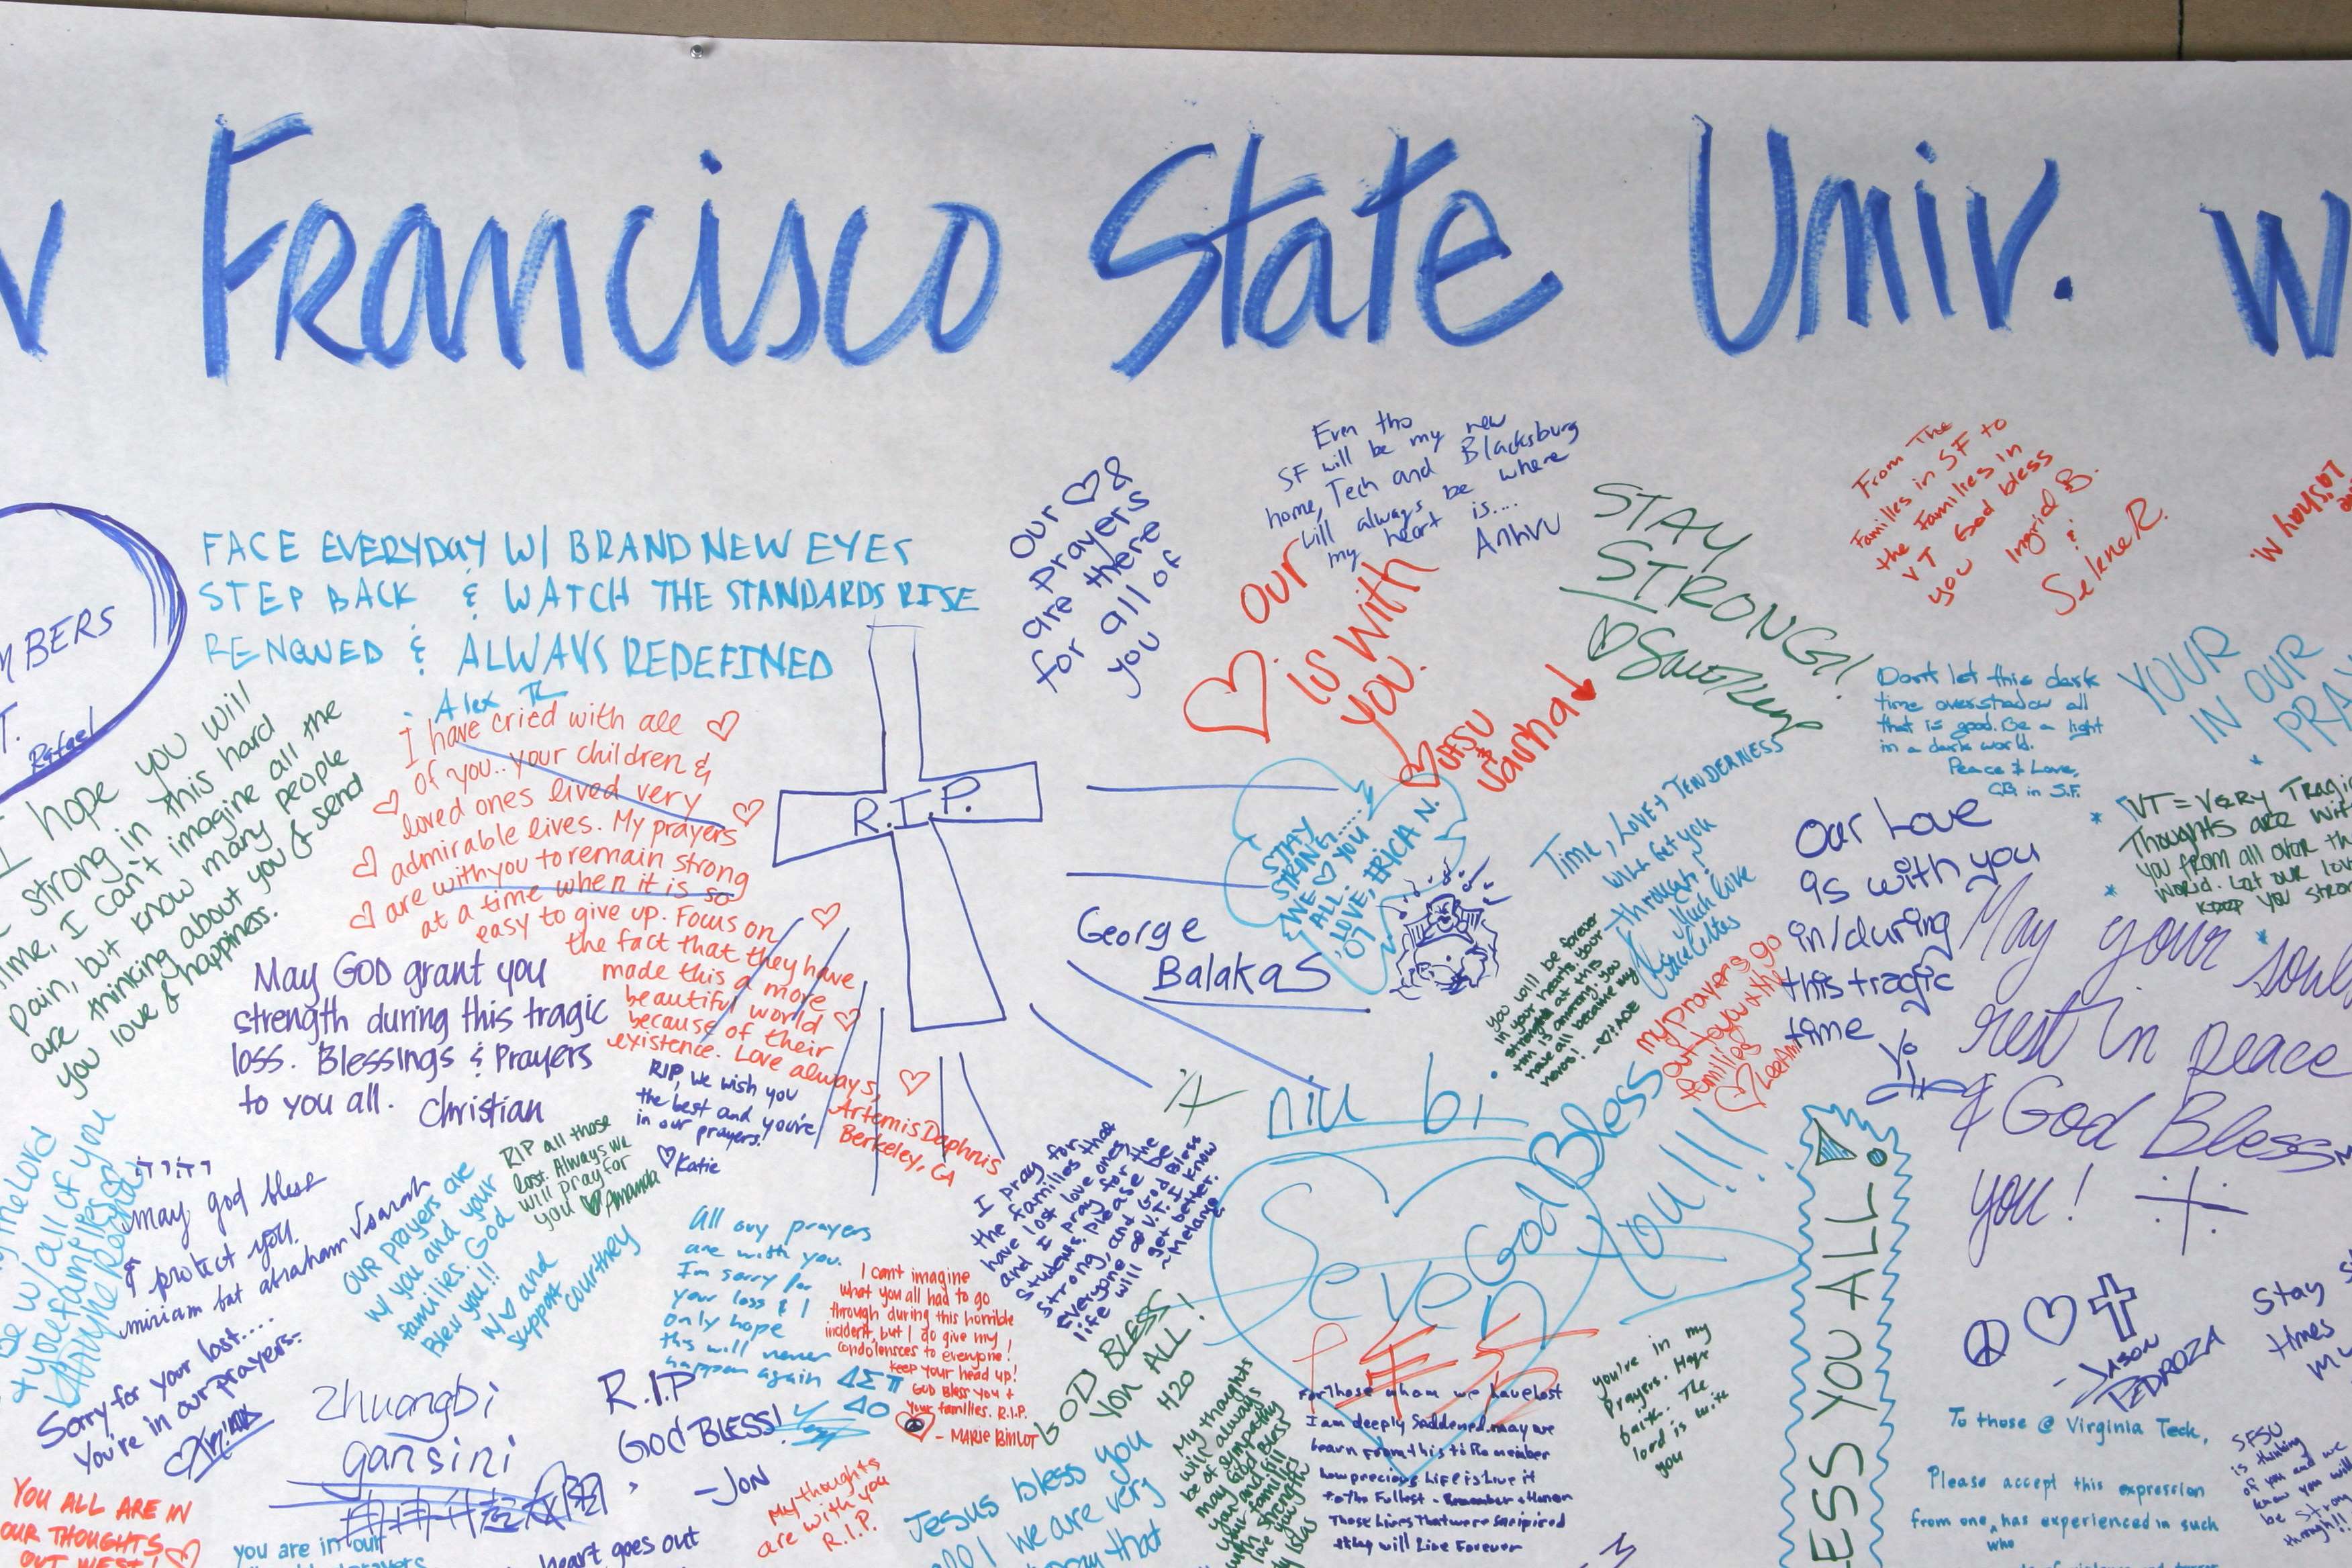 Francisco State Univ. W
MBERS
T.
Rafael
FACE EVERYDAY W/ BRAND NEW EYES
STEP BACK & WATCH THE STANDARDS RISE
RENEWED & ALWAYS REDEFINED
- Alex
I hope you will
strong in this hard
time, I can't imagine all the
pain, but know many people
are thinking about you & send
you love & happiness.
I have cried with all
of you.. your children &
loved ones lived very
admirable lives. My prayers
are with you to remain strong
at a time when it is so
easy to give up. Focus on
the fact that they have
made this a more
beautiful world
because of their
existence. Love always,
Artemis Daphnis
Berkeley, CA
R.I.P.
Our ♡ &
prayers
are there
for all of
you
Even tho
SF will be my new
home, Tech and Blacksburg
will always be where
my heart is....
Anhvu
Our
♡ is with
you.
♡ SFSU
Vanna
STAY
STRONG!
♡
From The
Families in SF to
the Families in
VT God bless
you Ingrid B.
&
Selene R.
Don't let this dark
time overshadow all
that is good. Be a light
in a dark world.
Peace & Love,
CG in S.F.
YOUR
IN OUR
PRAY
VT = VERY TRAGIC
Thoughts are with
you from all over the
world. Let our love
keep you strong
STAY
STRONG.....
WE ♡ YOU
ALL.
LOVE, ERICA N.
'07
George
Balakas
Time, Love & TENDERNESS
will get you
through!
Much love
you will be forever
in your hearts. Your
strength at this
time is amazing. you
have all become my
heros! -♡
my prayers go
out to you & the
families
♡ LeeAnn
Our Love
is with you
in/during
this tragic
time
May your soul
rest in peace
& God Bless
you!
May GOD grant you
strength during this tragic
loss. Blessings & Prayers
to you all. Christian
RIP, we wish you
the best and you're
in our prayers.
♡ Katie
RIP all those
lost. Always we
will pray for
you ♡ Amanda
may god bless
& protect you.
miriam bat avraham v'sarah
our prayers are
w/ you and your
families. God
Bless you!!
w/ ♡ and
support
courtney
Sorry for your lost....
You're in our prayers.
All our prayers
are with you.
I'm sorry for
your loss & I
only hope
this will never
happen again ΔΣΠ
I can't imagine
what you all had to go
through during this horrible
incident, but I do give my
condolensces to everyone!
keep your head up!
GOD Bless you +
your families. R.I.P.
- MARIE BINLOT
I pray for
the families that
have lost love ones
and I pray for the
students. Please be
strong, and God Bless
everyone @ V.T. I know
life will get better.
~Melanie
GOD BLESS
YOU ALL!
H2O
niu bi
God Bless
You!!!
Seven
zhuangbi
gansini
R.I.P
GOD BLESS!
-JON
YOU ALL ARE IN
OUR THOUGHTS
OUT WEST! ♡
you are in our
heart goes out
My thoughts
are with you
R.I.P.
Jesus bless you
all! we are very
My thoughts
will always
be of sympathy
may God Bless
you and fill
your families
with strength
For Those whom we have lost
I am deeply Saddened, may we
learn from this to Remember
how precious Life is Live it
to the Fullest - Remember & Honor
Those Lives That were
they will Live Forever
you're in my
prayers. Hope
The
lord is with
you
LESS YOU ALL
- JASON
PEDROZA
Stay
times
To those @ Virginia Teck,
Please accept this expression
from one who has experienced in such
SFSU
is thinking
of you and we
know you will
be strong
through!!